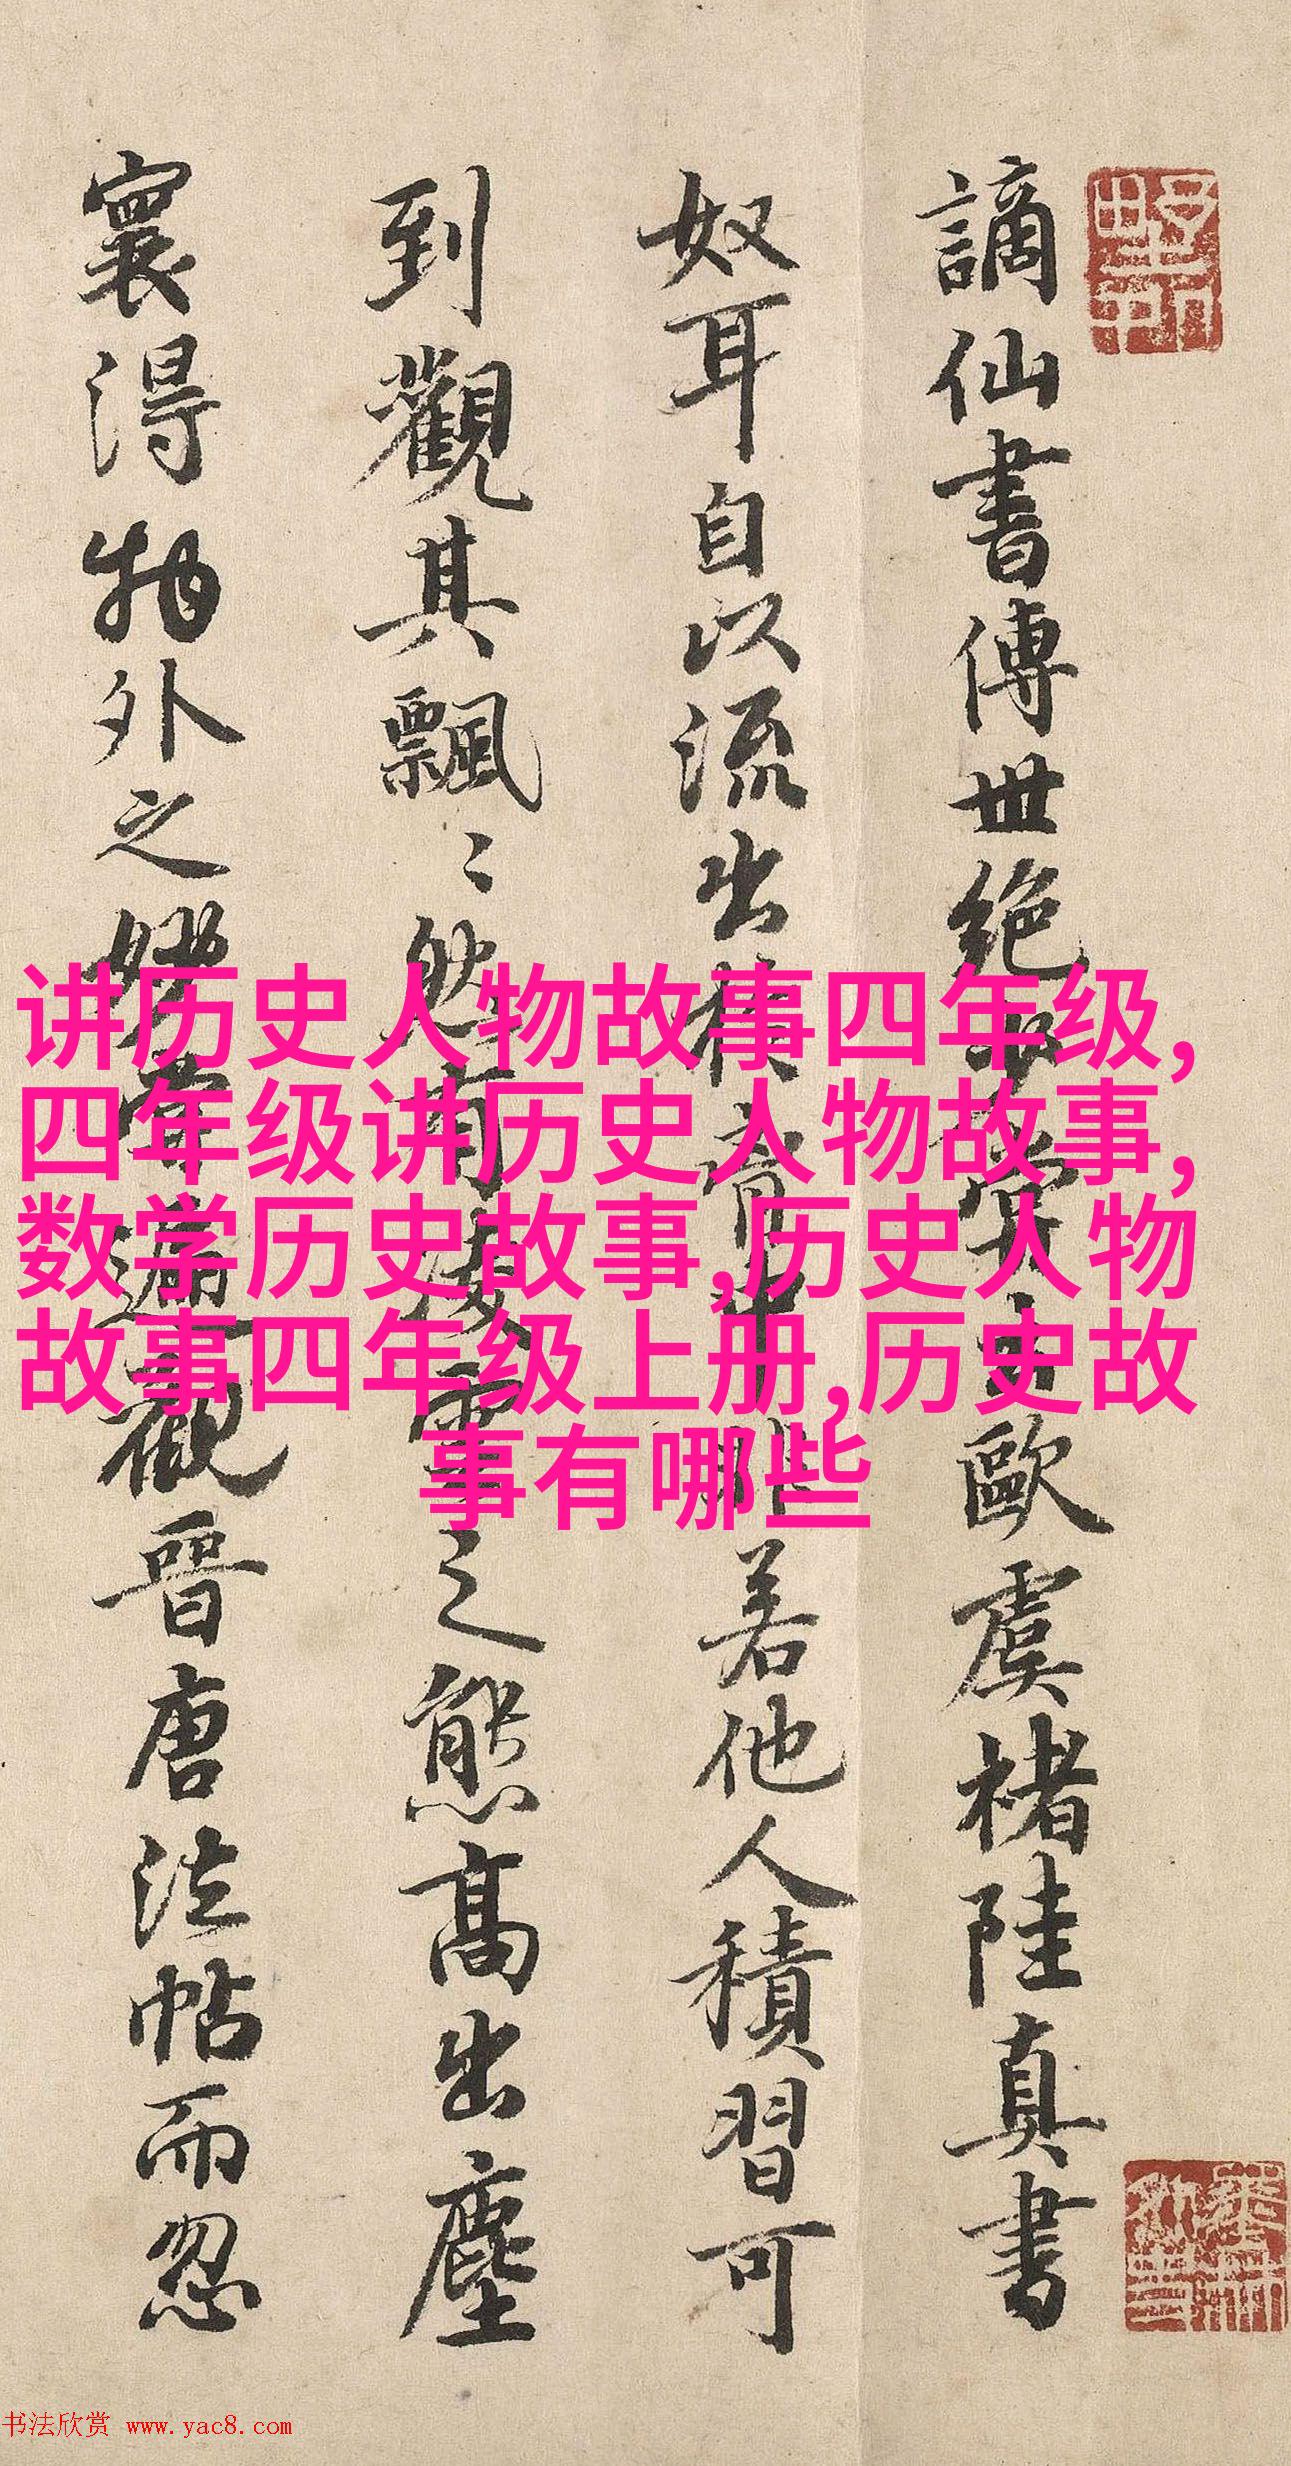 謫仙書傳世絕少嘗云歐虞褚陸真書
奴耳自以流出胷中非若他人積習可
到觀其飄〻然有凌雲之態高出塵
寰得物外之妙嘗遍觀晉唐法帖而忽
讲历史人物故事四年级,
四年级讲历史人物故事,
数学历史故事,历史人物
故事四年级上册,历史故
事有哪些
书法欣赏 www.yac8.com